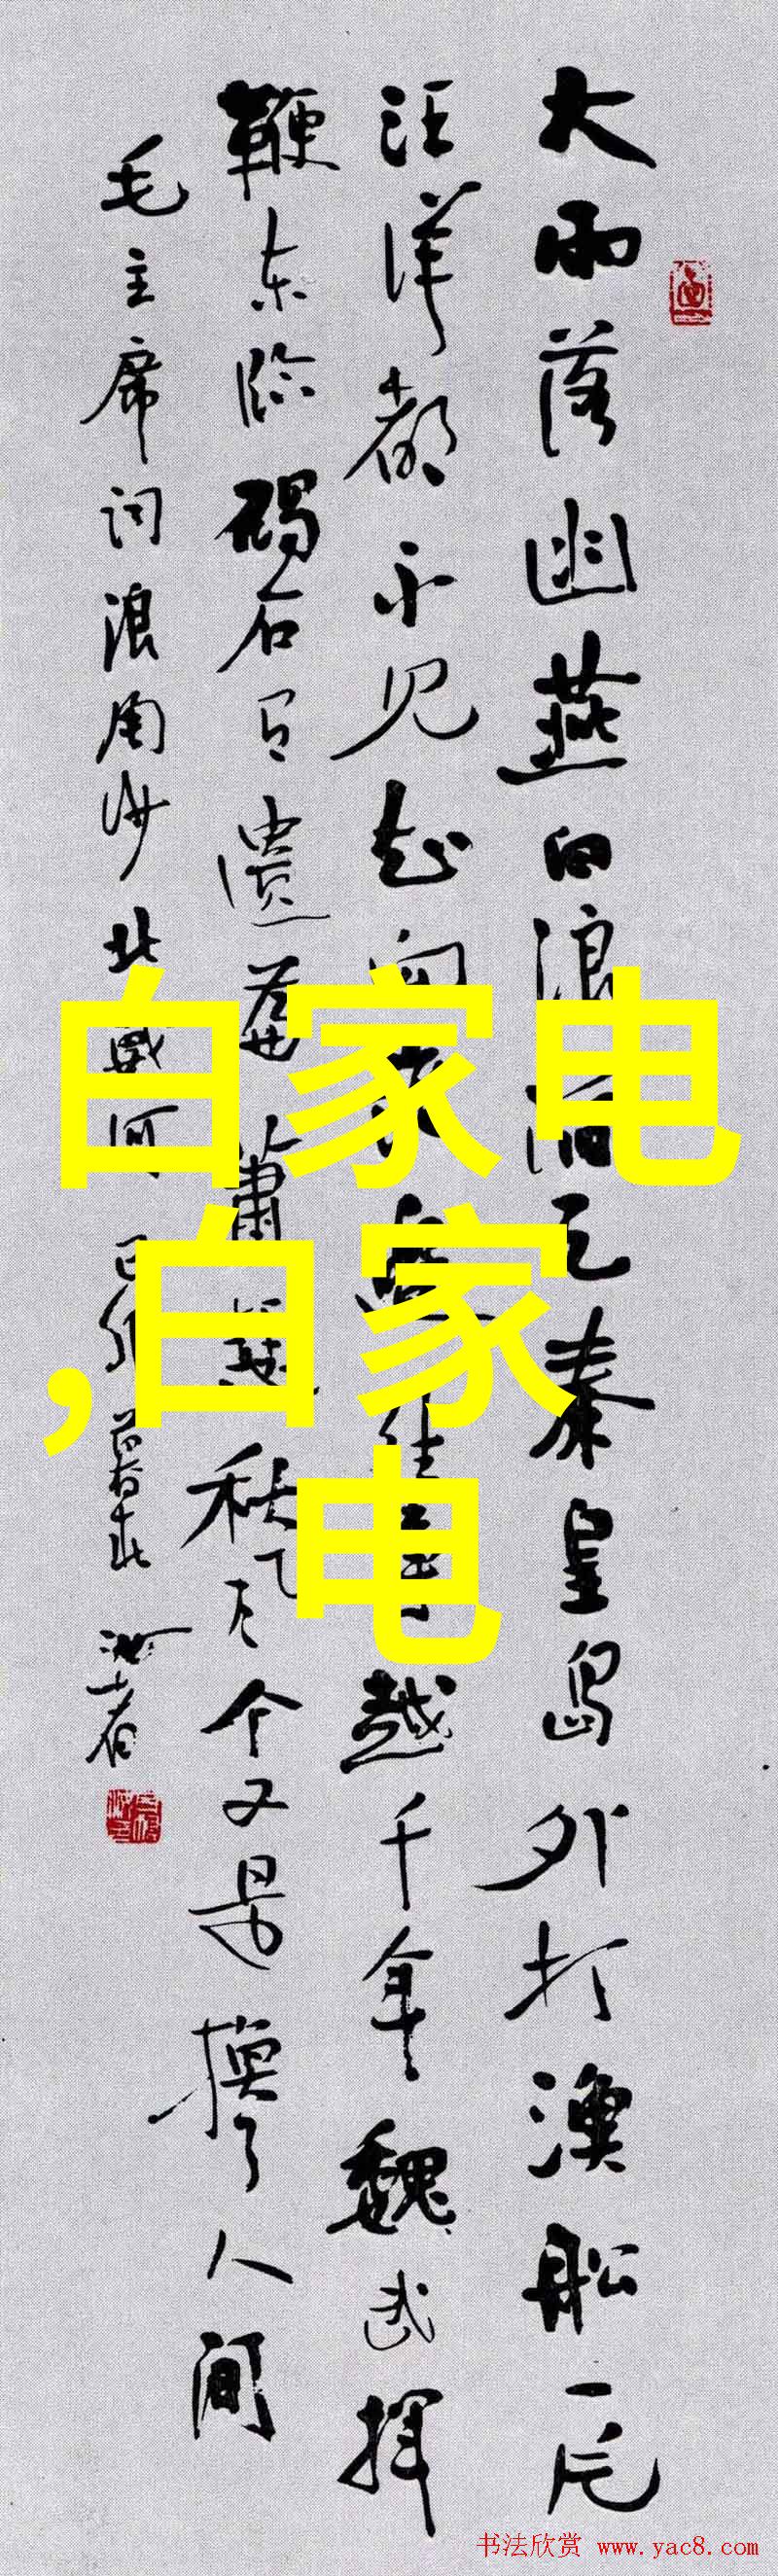 大雨落幽燕白浪滔天秦皇岛外打漁船一片
汪洋都不见知向谁边往事越千年魏武挥
鞭东临碣石有遗篇萧瑟秋风今又是换了人间
毛主席词浪淘沙北戴河 己卯暮春
白家电
,白家
电
书法欣赏 www.yac8.com